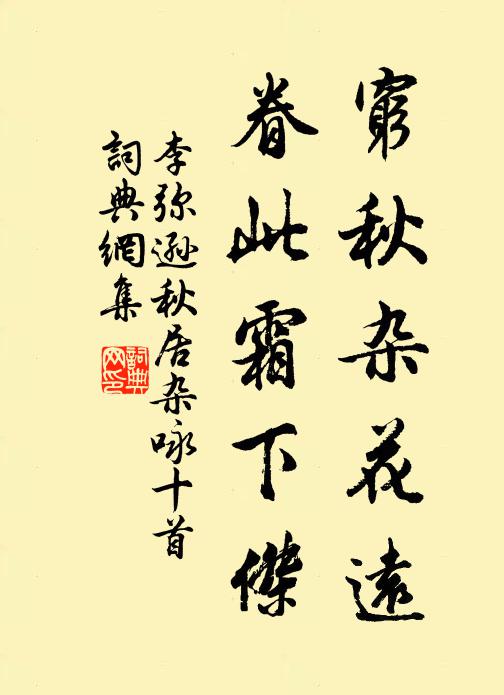 窮秋杂花遠
眷此霜下傑
李弥遜秋居杂咏十首
詞典網集
詞典网印